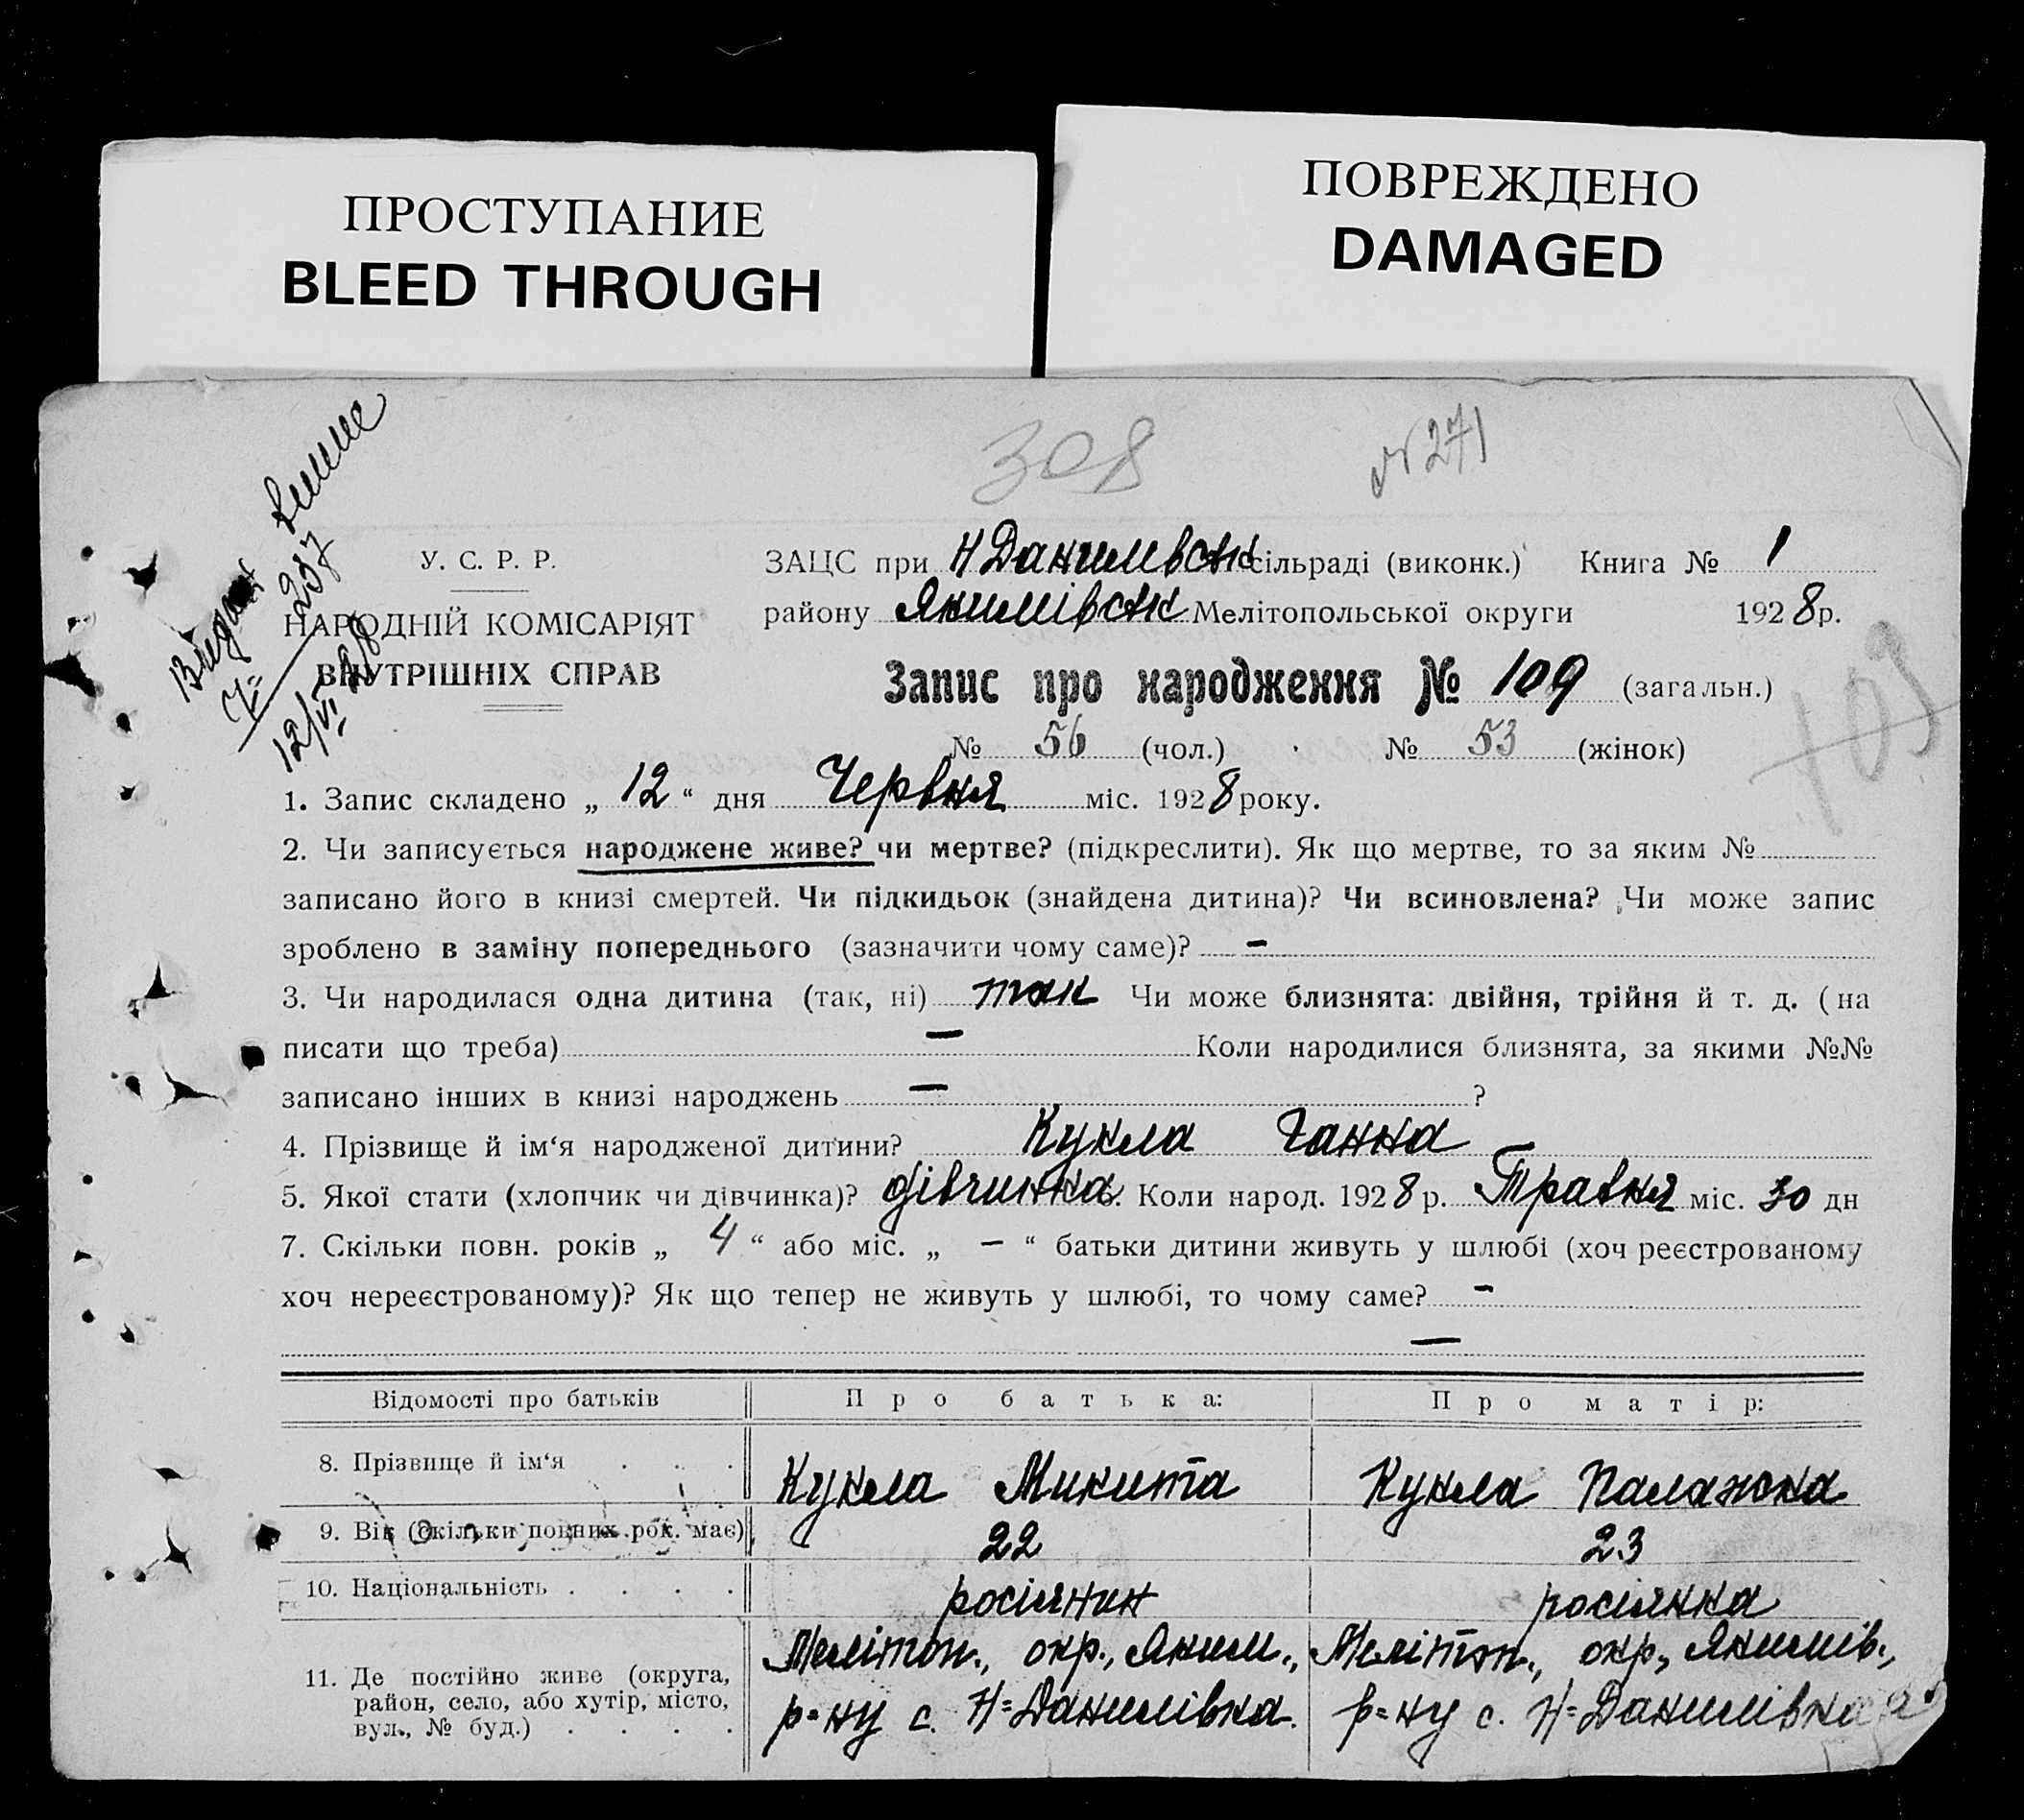 ПРОСТУПАНИЕ
BLEED THROUGH
ПОВРЕЖДЕНО
DAMAGED
308
№ 271
Видан виписк
Ч= 237
12/VI 28
У. С. Р. Р.
НАРОДНІЙ КОМІСАРІЯТ
ВНУТРІШНІХ СПРАВ
ЗАЦС при Н Данилівськ сільраді (виконк.) Книга № 1
району Якимівськ Мелітопольської округи 1928 р.
Запис про народження № 109 (загальн.)
№ 56 (чол.) № 53 (жінок)
109
1. Запис складено „ 12 “ дня Червня міс. 1928 року.
2. Чи записується народжене живе? чи мертве? (підкреслити). Як що мертве, то за яким №
записано його в книзі смертей. Чи підкидьок (знайдена дитина)? Чи всиновлена? Чи може запис
зроблено в заміну попереднього (зазначити чому саме)? —
3. Чи народилася одна дитина (так, ні) так Чи може близнята: двійня, трійня й т. д. (на
писати що треба) — Коли народилися близнята, за якими №№
записано інших в книзі народжень — ?
4. Прізвище й ім‘я народженої дитини? Кукла Ганна
5. Якої стати (хлопчик чи дівчинка)? дівчинка. Коли народ. 1928 р. Травня міс. 30 дн
7. Скільки повн. років „ 4 “ або міс. „ — “ батьки дитини живуть у шлюбі (хоч реєстрованому
хоч нереєстрованому)? Як що тепер не живуть у шлюбі, то чому саме? —
—
Відомості про батьків Про батька: Про матір:
8. Прізвище й ім‘я . . . Кукла Микита Кукла Палажка
9. Вік (скільки повних рок. має) 22 23
10. Національність . . . . росіянин росіянка
11. Де постійно живе (округа, район, село, або хутір, місто, вул., № буд.) . . . .
Меліт��п., окр., Яким., р=ну с. Н=Данилівка.
Мелітоп., окр., Якимів., р=ну с. Н=Данилівка